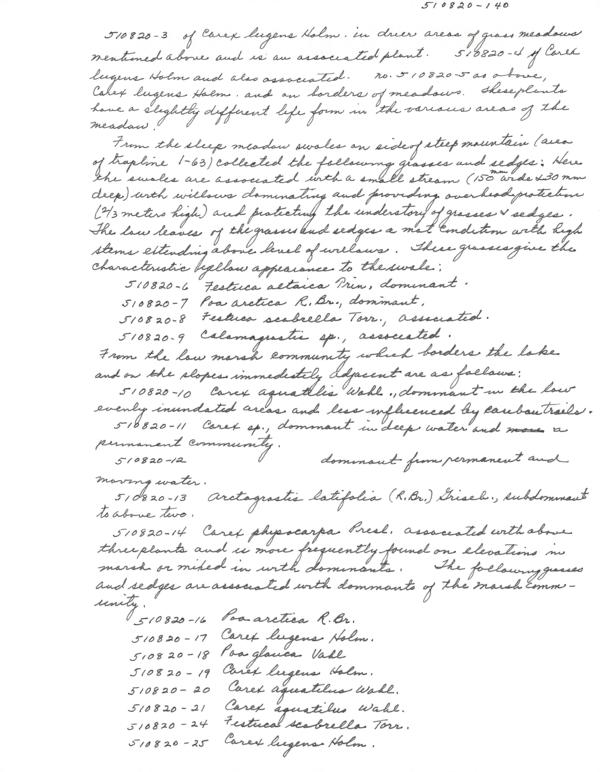 510820-140
510820-3 of Carex lugens Holm. in drier areas of grass meadows
mentioned above and is an associated plant. 510820-4 of Carex
lugens Holm and also associated. no. 510820-5 as above,
Carex lugens Holm. and on borders of meadows. These plants
have a slightly different life form in the various areas of the
meadow.
From the steep meadow swales on side of steep mountain (area
of trapline 1-63) collected the following grasses and sedges: Here
the swales are associated with a small stream (150 mm wide x 30 mm
deep) with willows dominating and providing overhead protection
(2/3 meters high) and protecting the understory of grasses & sedges.
The low leaves of the grasses and sedges a mat condition with high
stems extending above level of willows. These grasses give the
characteristic yellow appearance to the swale:
510820-6 Festuca altaica Trin, dominant.
510820-7 Poa arctica R. Br., dominant,
510820-8 Festuca scabrella Torr., associated.
510820-9 Calamagrostis sp., associated.
From the low marsh community which borders the lake
and on the slopes immediately adjacent are as follows:
510820-10 Carex aquatilis Wahl., dominant in the low
evenly inundated areas and less influenced by caribou trails.
510820-11 Carex sp., dominant in deep water and a
permanent community.
510820-12 dominant from permanent and
moving water.
510820-13 Arctagrostis latifolia (R. Br.) Griseb., subdominant
to above two.
510820-14 Carex physocarpa Presl. associated with above
three plants and is more frequently found on elevations in
marsh or mixed in with dominants. The following grasses
and sedges are associated with dominants of the marsh comm-
unity.
510820-16 Poa arctica R. Br.
510820-17 Carex lugens Holm.
510820-18 Poa glauca Vahl
510820-19 Carex lugens Holm.
510820-20 Carex aquatilus Wahl.
510820-21 Carex aquatilus Wahl.
510820-24 Festuca scabrella Torr.
510820-25 Carex lugens Holm.